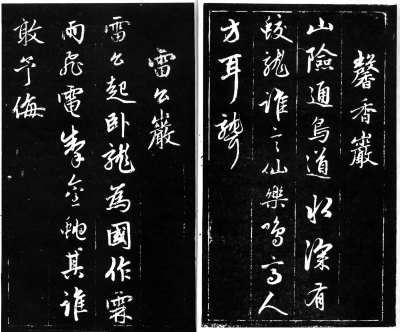 馨香巖
山險通鳥道水深有
蛟龍誰言仙樂鳴高人
方耳聾
雷公巖
雷公起卧龍為國作霖
雨飛電掣金虵其誰
敢予侮